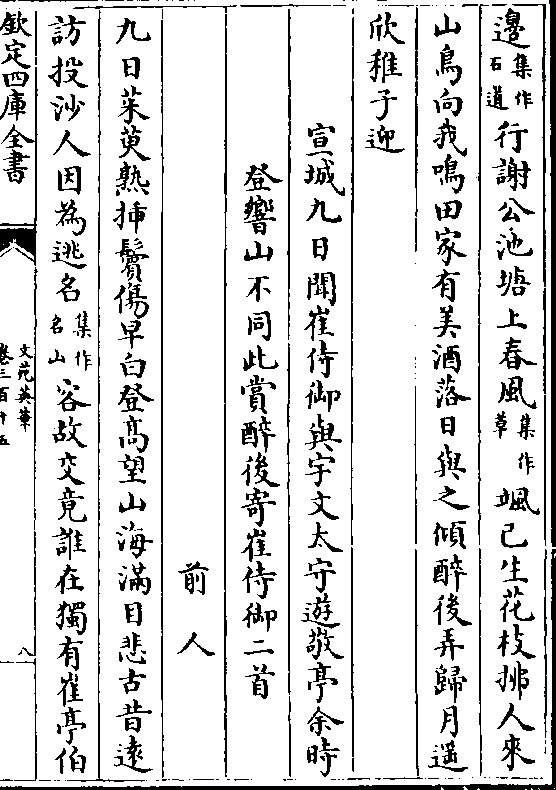 邊集作石道行謝公池塘上春風集作草颯已生花枝拂人來
山鳥向我鳴田家有美酒落日與之傾醉後弄歸月遥
欣稚子迎
宣城九日聞崔侍御與宇文太守遊敬亭余時
登響山不同此賞醉後寄崔侍御二首
前人
九日茱萸熟挿鬢傷早白登髙望山海滿目悲古昔逺
訪投沙人因為逃名集作名山容故交竟誰在獨有崔亭伯
欽定四庫全書
文苑英華
卷三百十五
八